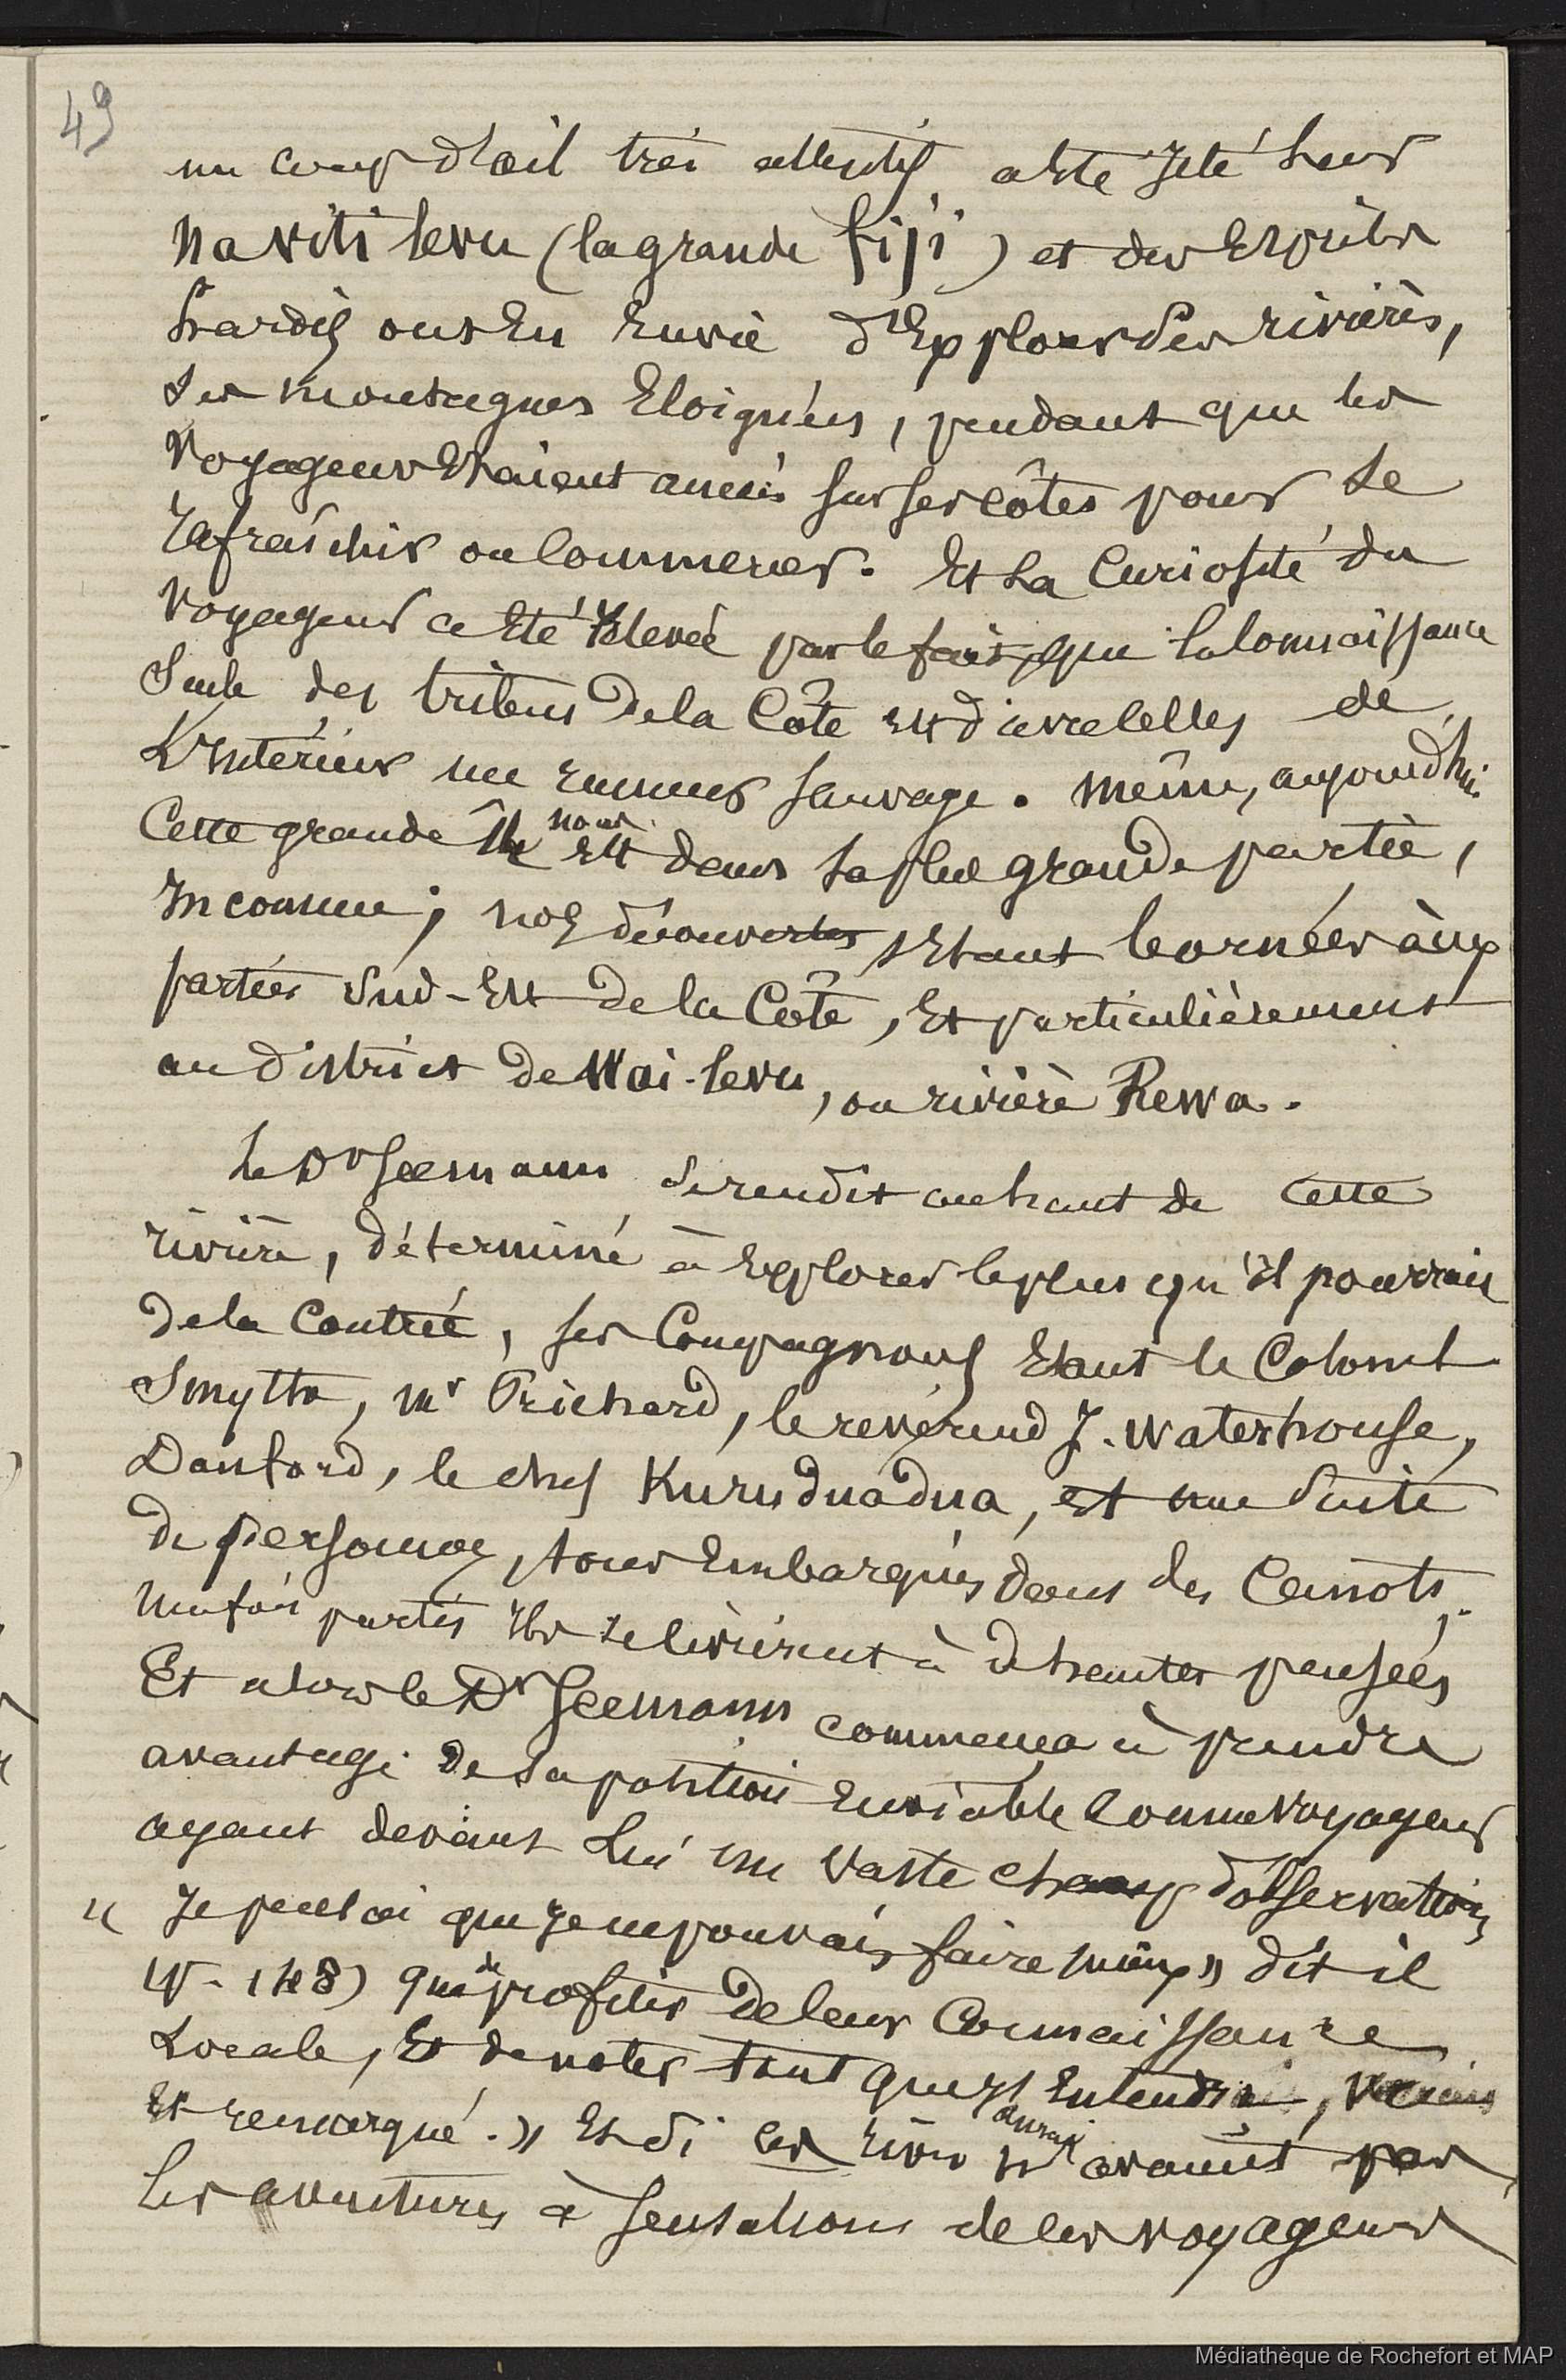 49
un coup d'œil très attentif a été jeté sur
Na Viti levu (la grande Fiji) et des esprits
hardis ont eu envie d'explorer ses rivières,
ses montagnes éloignées, pendant que les
voyageurs étaient ancrés sur ses côtes pour se
rafraîchir ou commercer. Et la curiosité du
voyageur a été élevée par le fait que la connaissance
seule des tribus de la Côte est d'avec celles de
L'intérieur une rumeur sauvage. même, aujourd'hui
Cette grande île nous est dans sa plus grande partie,
Inconnue ; nos découvertes, étant bornées aux
parties Sud-Est de la Côte, et particulièrement
au District de Wai-levu, ou rivière Rewa.
Le Dr Seemann se rendit au haut de cette
rivière, déterminé à explorer le plus qu'il pourrait
de la Contrée, ses Compagnons étant le Colonel
Smythe, Mr Prichard, le révérend J. Waterhouse,
Danford, le chef Kuruduadua, et une suite
de personnes, tous embarqués dans des Canots.
Une fois partis ils se livrèrent à de hautes pensées
Et alors le Dr Seemann commença à prendre
avantage de sa position enviable comme voyageur
ayant devant lui un vaste champ d'observation
« Je pensai que je ne pouvais faire mieux » dit il
(p. 148) que de profiter de leur Connaissance
Locale, et de noter tout que j'entendrai, verrais
et remarqué. » Et si ces rives n'auraient pas
les aventures à sensations de les voyageurs
Médiathèque de Rochefort et MAP